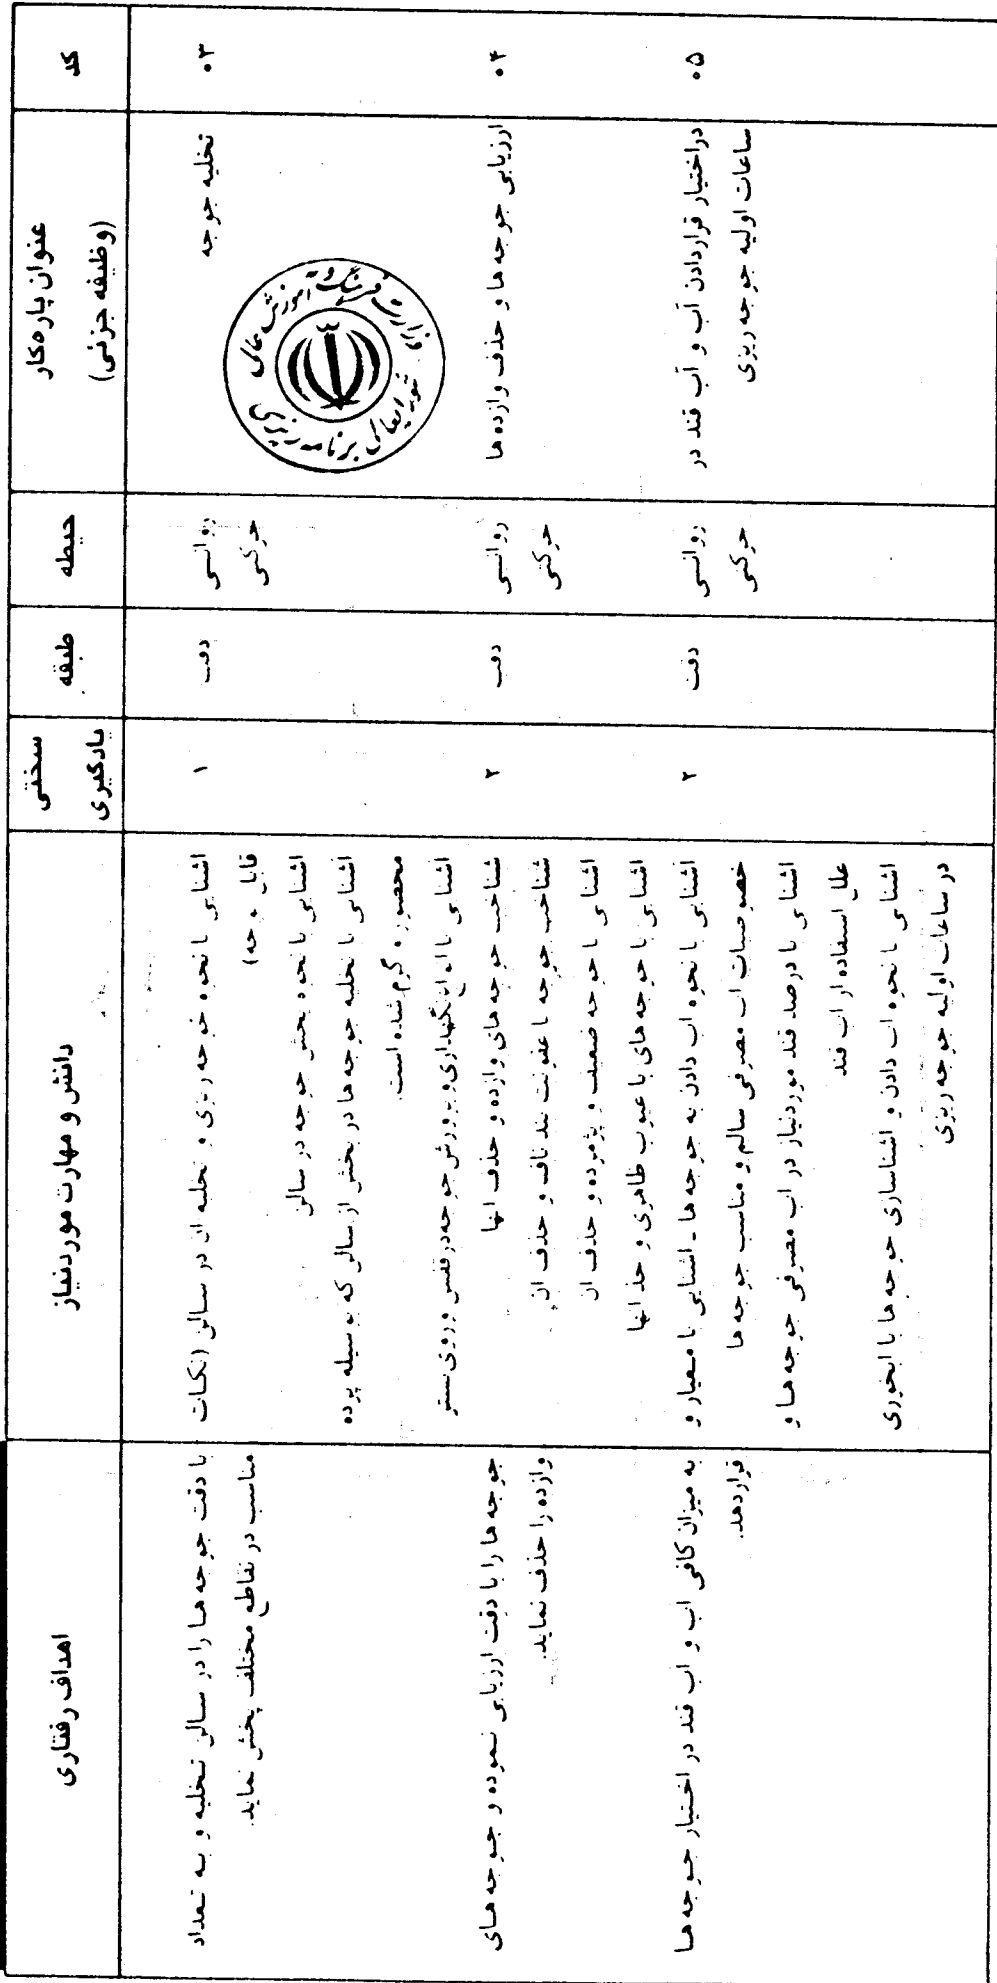 کد
عنوان پاره‌کار
(وظیفه جزئی)
حیطه
طبقه
سختی
یادگیری
دانش و مهارت موردنیاز
اهداف رفتاری
۰۳
تخلیه جوجه
روانی
حرکتی
دقت
۱
اشنایی با نحوه جوجه ریزی و تخلیه ان در سالن (نکات
قابل توجه)
اشنایی با نحوه پخش جوجه در سالن
اشنایی با تخلیه جوجه ها در بخش از سالن که بوسیله پرده
محصور و گرم شده است.
اشنایی با انواع نگهداری و پرورش جوجه در قفس و روی بستر
با دقت جوجه هـا را در سـالن تـخلیه و بـه تـعداد
مناسب در نقاطع مختلف پخش نماید.
وزارت فرهنگ و آموزش عالی
شورایعالی برنامه ریزی
۰۴
ارزیابی جوجه ها و حذف وازده ها
روانـی
حرکتی
دقت
۲
شناخت جوجه های وازده و حذف انها
شناخت جوجه با عفونت بند ناف و حذف ان
اشنایی با جوجه ضعیف و پژمرده و حذف ان
اشنایی با جوجه های با عیوب ظاهری و حذ انها
جوجه ها را با دقت ارزیابی نـموده و جـوجه هـای
وازده را حذف نماید.
۰۵
دراختیار قراردادن آب و آب قند در
ساعات اولیه جوجه ریزی
روانـی
حرکتی
دقت
۲
اشنایی با نحوه اب دادن به جوجه ها ـ اشنایی با مـعیار و
خصوصیات اب مصرفی سالم و مناسب جوجه ها
اشنایی با درصد قند موردنیاز در اب مصرفی جوجه هـا و
علل استفاده از اب قند
اشنایی با نحوه اب دادن و اشناسازی جوجه ها با ابخوری
در ساعات اولیه جوجه ریزی
به میزان کافی اب و اب قند در اختیار جـوجه هـا
قراردهد.